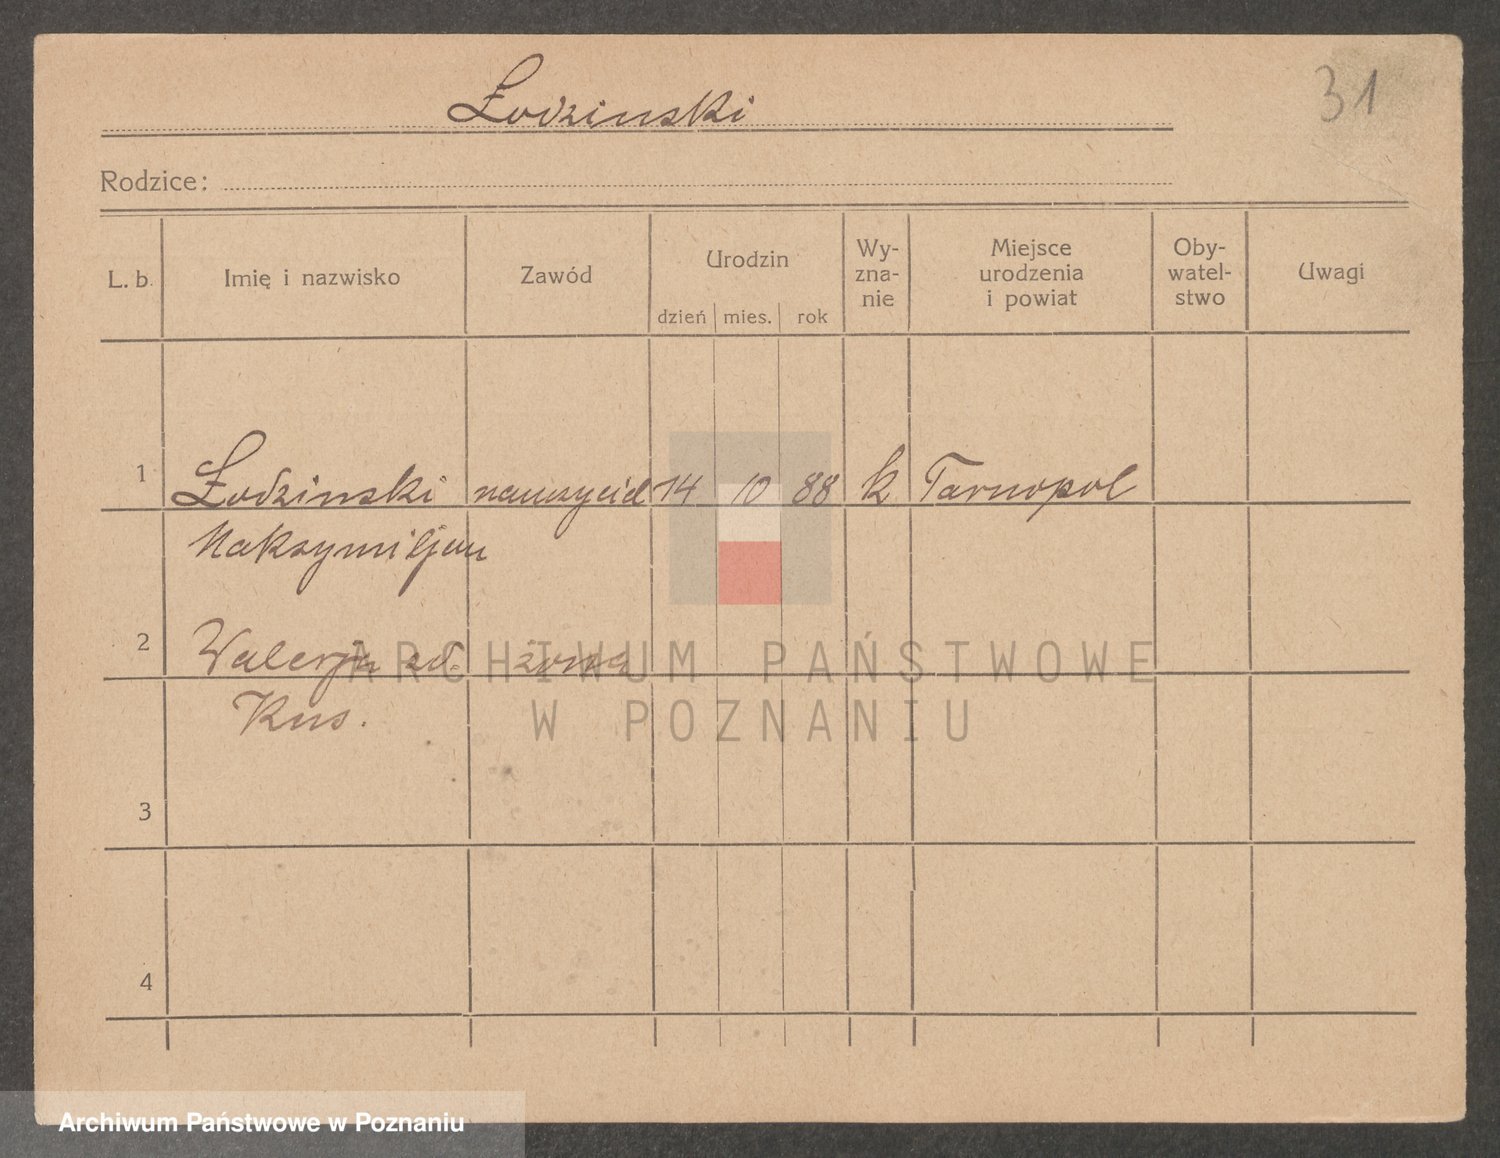 31
Łodzinski
Rodzice:
L. b. Imię i nazwisko Zawód Urodzin dzień mies. rok Wy-zna-nie Miejsce urodzenia i powiat Oby-watel-stwo Uwagi
1 Łodzinski nauczyciel 14 10 88 k Tarnopol
Maksymiljan
2 Walerja zd. żona
Kus.
3
4
ARCHIWUM PAŃSTWOWE
W POZNANIU
Archiwum Państwowe w Poznaniu